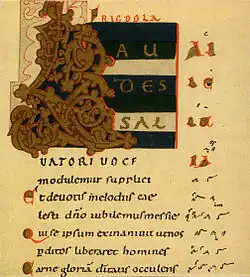 FRIGDOLA
LAU
DES
SAL
UATORI UOCE
modulemur supplici
Et deuotis melodiis cae
lesti dño iubilemus messie
Qui se ipsum exinaniuit ut nos
pditos liberaret homines
Carne gloriã deitatis occulens
Al
le
IA